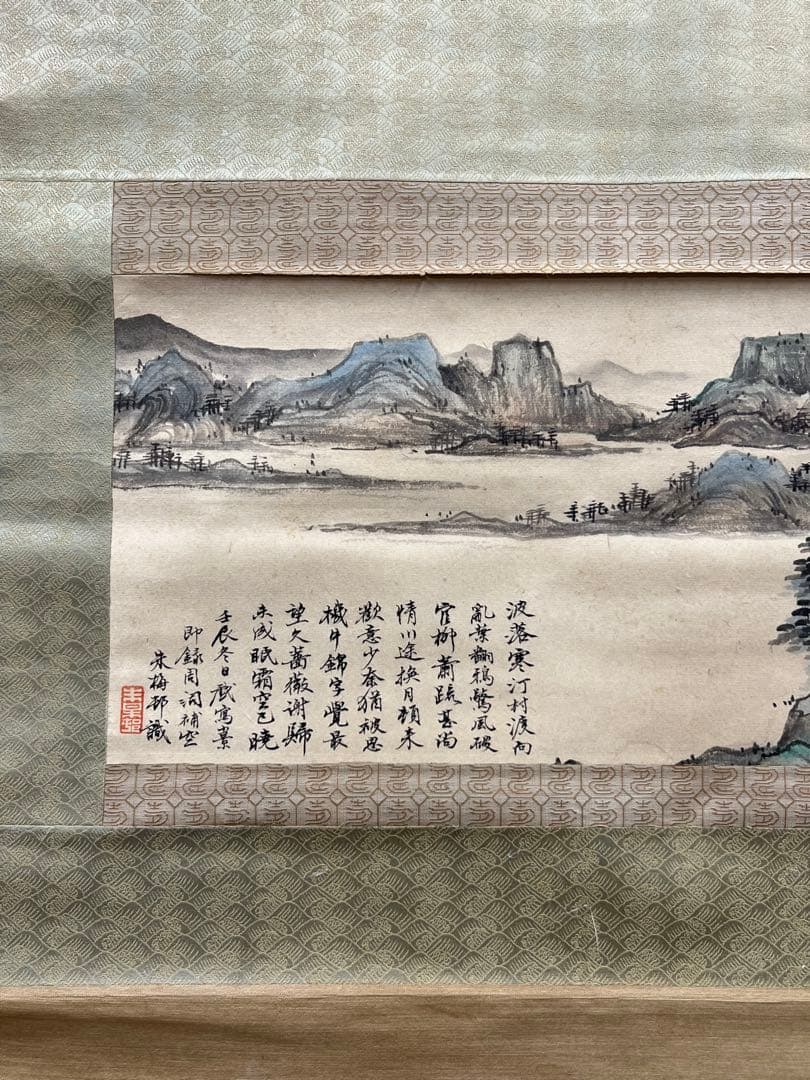 波落寒汀村渡向
亂葉翻鴉驚風破
官柳蕭疏甚尚
情川途換月頻來
歡意少奈猶被思
機牛錦字覺最
望久薔薇謝歸
未成眠霜空已曉
壬辰冬日戲寫景
即錄周詞補空
朱梅邨識